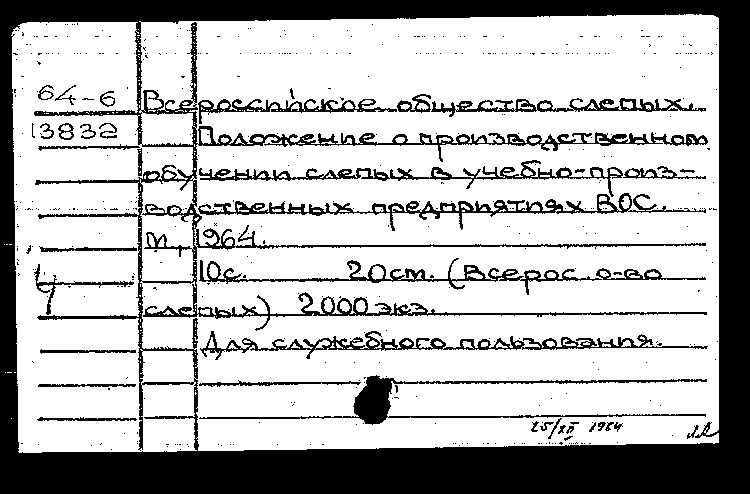 64-6 Всероссийское общество слепых.
13832 Положение о производственном
обучении слепых в учебно-произ-
водственных предприятиях ВОС.
М., 1964.
10с. 20см. (Всерос. о-во
слепых) 2000 экз.
Для служебного пользования.
25/XII 1964